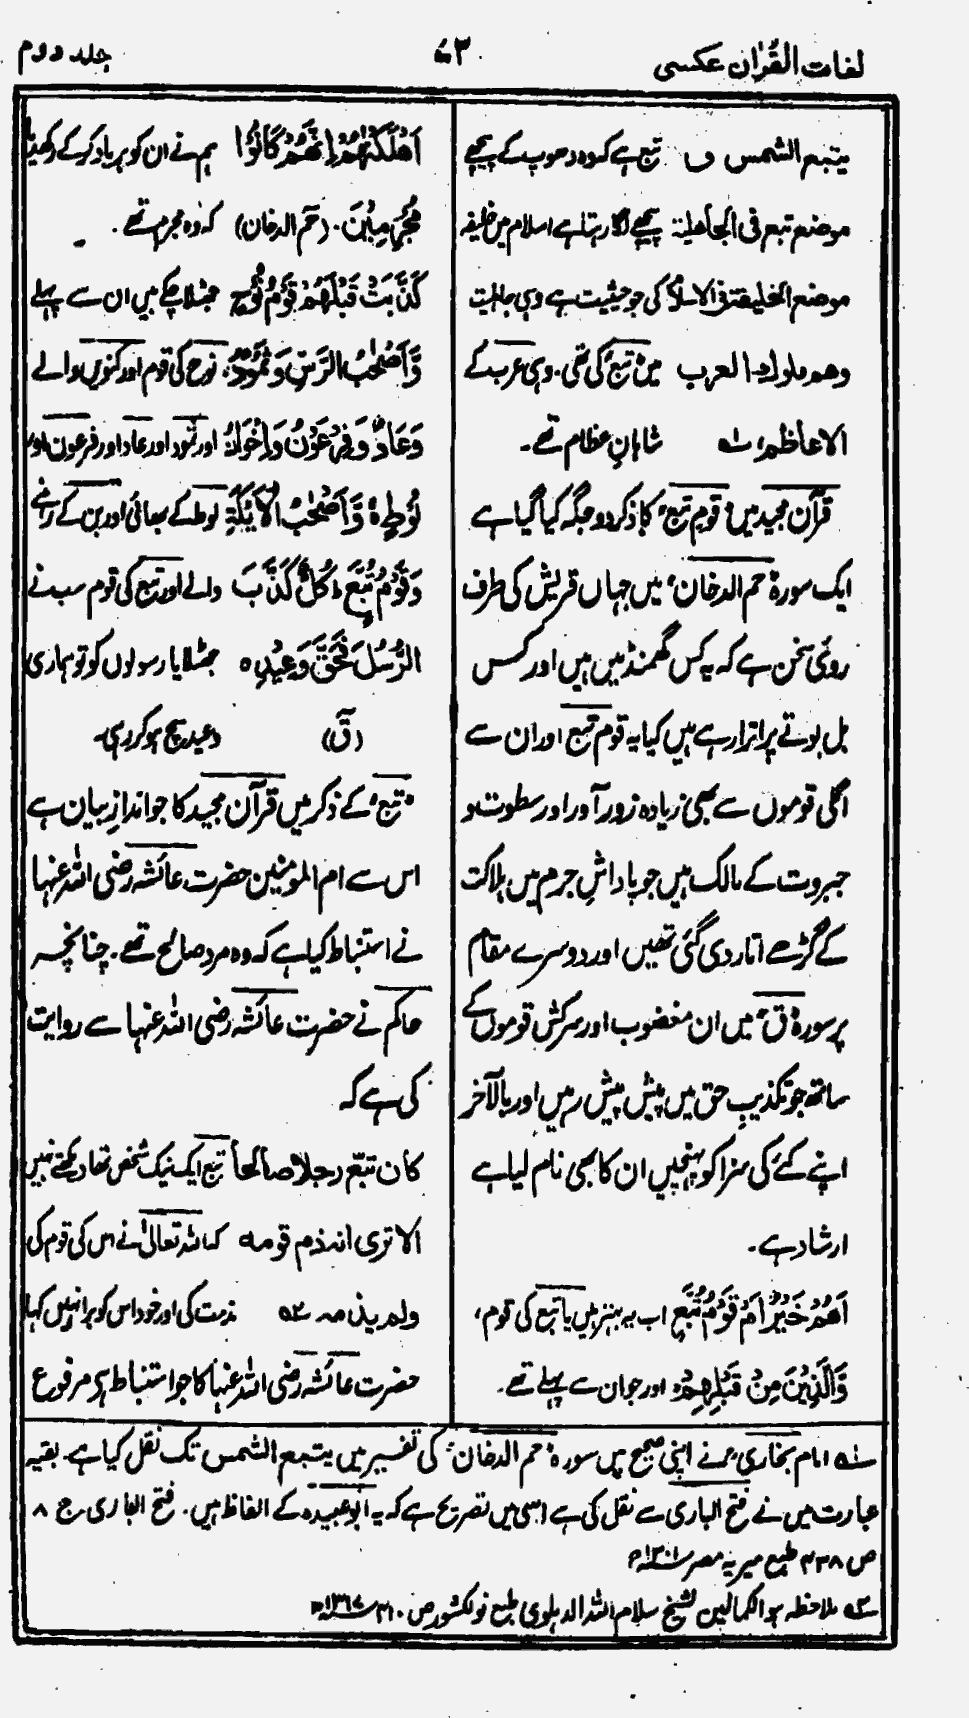 لغات القرآن عکسی
۷۳
جلد دوم
يتبع الشمس و تبع ہے کہ وہ دھوپ کے پیچھے
موضع تبع فی الجاهلیة پیچھے لگا رہتا ہے اسلام میں خلیفہ
موضع الخلیفة فی الاسلام کی جو حیثیت ہے وہی جاہلیت
وهم ملوك العرب میں تبع کی تھی۔ وہی عرب کے
الاعاظم، لہ شاہانِ عظام تھے۔
قرآن مجید میں "قوم تبع" کا ذکر دو جگہ کیا گیا ہے
ایک سورۂ "حم الدخان" میں جہاں قریش کی طرف
روئی سخن ہے کہ یہ کس گھمنڈ میں ہیں اور کس
بل بوتے پر اترا رہے ہیں کیا یہ قوم تبع اور ان سے
اگلی قوموں سے بھی زیادہ زور آور اور سطوت و
جبروت کے مالک ہیں جو پاداشِ جرم میں ہلاکت
کے گڑھے اتار دی گئی تھیں اور دوسرے مقام
پر سورۂ "ق" میں ان مغضوب اور سرکش قوموں کے
ساتھ جو تکذیبِ حق میں پیش پیش رہیں اور بالآخر
اپنے کئے کی سزا کو پہنچیں ان کا بھی نام لیا ہے
ارشاد ہے۔
اَهُمْ خَيْرٌ اَمْ قَوْمُ تُبَّعٍ اب یہ بہتر ہیں یا تبع کی قوم،
وَّالَّذِيْنَ مِنْ قَبْلِهِمْ اور جو ان سے پہلے تھے۔
اَهْلَكْنٰهُمْ اِنَّهُمْ كَانُوْا ہم نے ان کو برباد کر کے رکھدیا
مُجْرِمِيْنَ۔ (حم الدخان) کہ وہ مجرم تھے۔
كَذَّبَتْ قَبْلَهُمْ قَوْمُ نُوْحٍ جھٹلا چکے ہیں ان سے پہلے
وَّاَصْحٰبُ الرَّسِّ وَثَمُوْدُ۔ نوح کی قوم اور کنویں والے
وَعَادٌ وَفِرْعَوْنُ وَاِخْوَانُ اور ثمود اور عاد اور فرعون اور
لُوْطٍ ہ وَّاَصْحٰبُ الْاَيْكَةِ لوط کے بھائی اور بن کے رہنے
وَقَوْمُ تُبَّعٍ ؕ كُلٌّ كَذَّبَ والے اور تبع کی قوم سب نے
الرُّسُلَ فَحَقَّ وَعِيْدِ ہ جھٹلایا رسولوں کو تو ہماری
(قٓ) وعید سچ ہو کر رہی۔
"تبع" کے ذکر میں قرآن مجید کا جو اندازِ بیان ہے
اس سے ام المومنین حضرت عائشہ رضی اللہ عنہا
نے استنباط کیا ہے کہ وہ مرد صالح تھے۔ چنانچہ
حاکم نے حضرت عائشہ رضی اللہ عنہا سے روایت
کی ہے کہ
كان تبّع رجلا صالحا تبع ایک نیک شخص تھا دیکھتے نہیں
الا ترى انه ذم قومه کہ اللہ تعالیٰ نے اس کی قوم کی
ولم يذمه ۲ مذمت کی اور خود اس کو برا نہیں کہا
حضرت عائشہ رضی اللہ عنہا کا جو استنباط ہے مرفوع
۱ امام بخاریؒ نے اپنی صحیح میں سورۂ "حم الدخان" کی تفسیر میں يتبع الشمس تک نقل کیا ہے۔ بقیہ
عبارت میں نے فتح الباری سے نقل کی ہے اسی میں تصریح ہے کہ یہ ابو عبیدہ کے الفاظ ہیں۔ فتح الباری ج ۸
ص ۴۳۸ طبع میریہ مصر ۱۳۰۱ھ
۲ ملاحظہ ہو الکمالین لشیخ سلام اللہ الدہلوی طبع نولکشور ص ۴۱۰